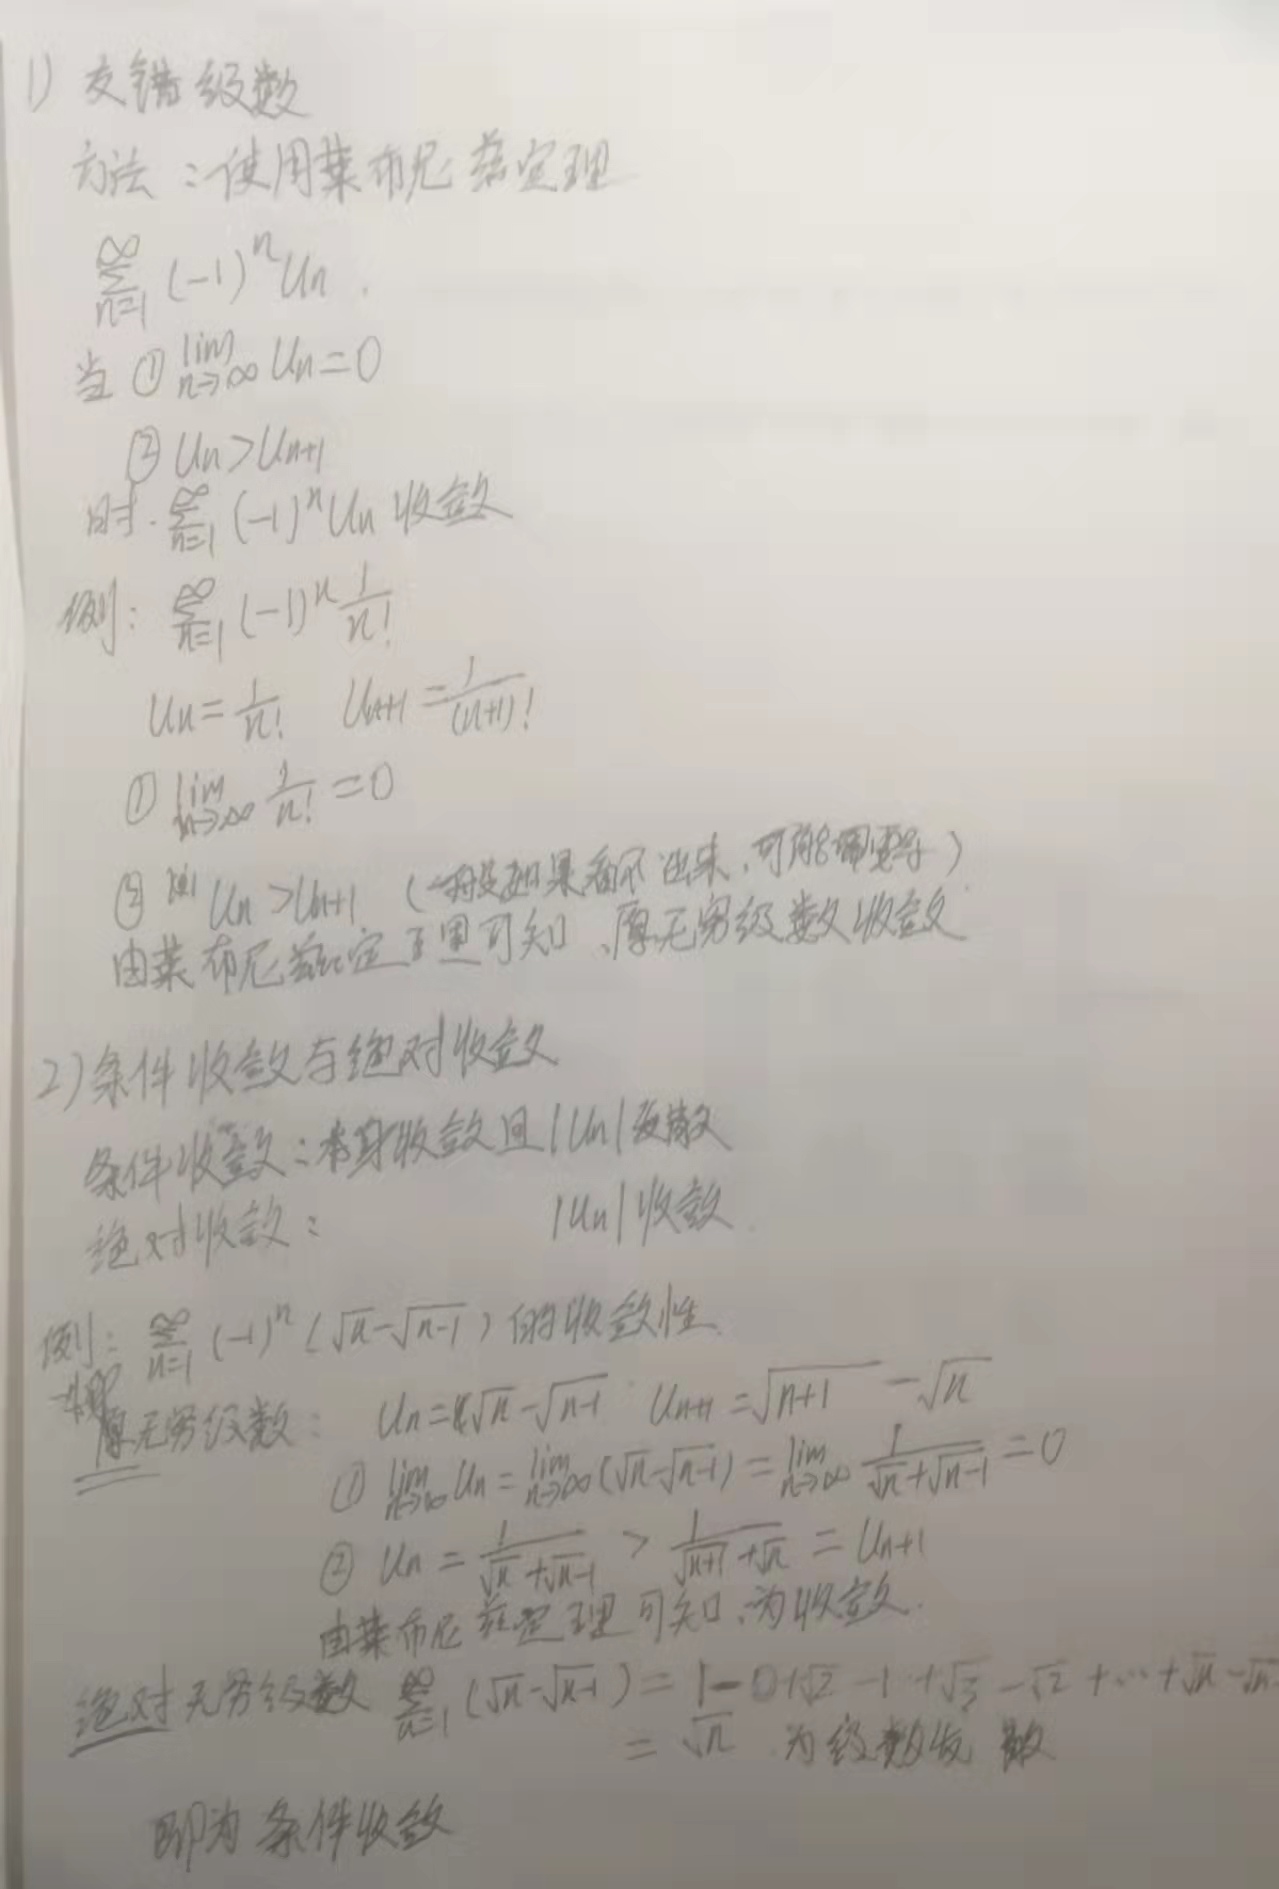 1) 交错级数
方法：使用莱布尼兹定理
∑_{n=1}^{∞} (-1)^n Un.
当 ① lim_{n→∞} Un = 0
② Un > Un+1
时. ∑_{n=1}^{∞} (-1)^n Un 收敛
例: ∑_{n=1}^{∞} (-1)^n 1/n!
Un = 1/n! Un+1 = 1/(n+1)!
① lim_{n→∞} 1/n! = 0
② Un > Un+1 (一般如果看不出来,可能需要求导)
由莱布尼兹定理可知,原无穷级数收敛
2) 条件收敛与绝对收敛
条件收敛：本身收敛且|Un|发散
绝对收敛： |Un|收敛.
例: ∑_{n=1}^{∞} (-1)^n (√n - √(n-1)) 的收敛性.
原无穷级数: Un = √n - √(n-1) Un+1 = √(n+1) - √n
① lim_{n→∞} Un = lim_{n→∞} (√n - √(n-1)) = lim_{n→∞} 1/(√n + √(n-1)) = 0
② Un = 1/(√n + √(n-1)) > 1/(√(n+1) + √n) = Un+1
由莱布尼兹定理可知,为收敛.
绝对无穷级数 ∑_{n=1}^{∞} (√n - √(n-1)) = 1 - 0 + √2 - 1 + √3 - √2 + ⋯ + √n - √n-
= √n 为级数发散
即为条件收敛